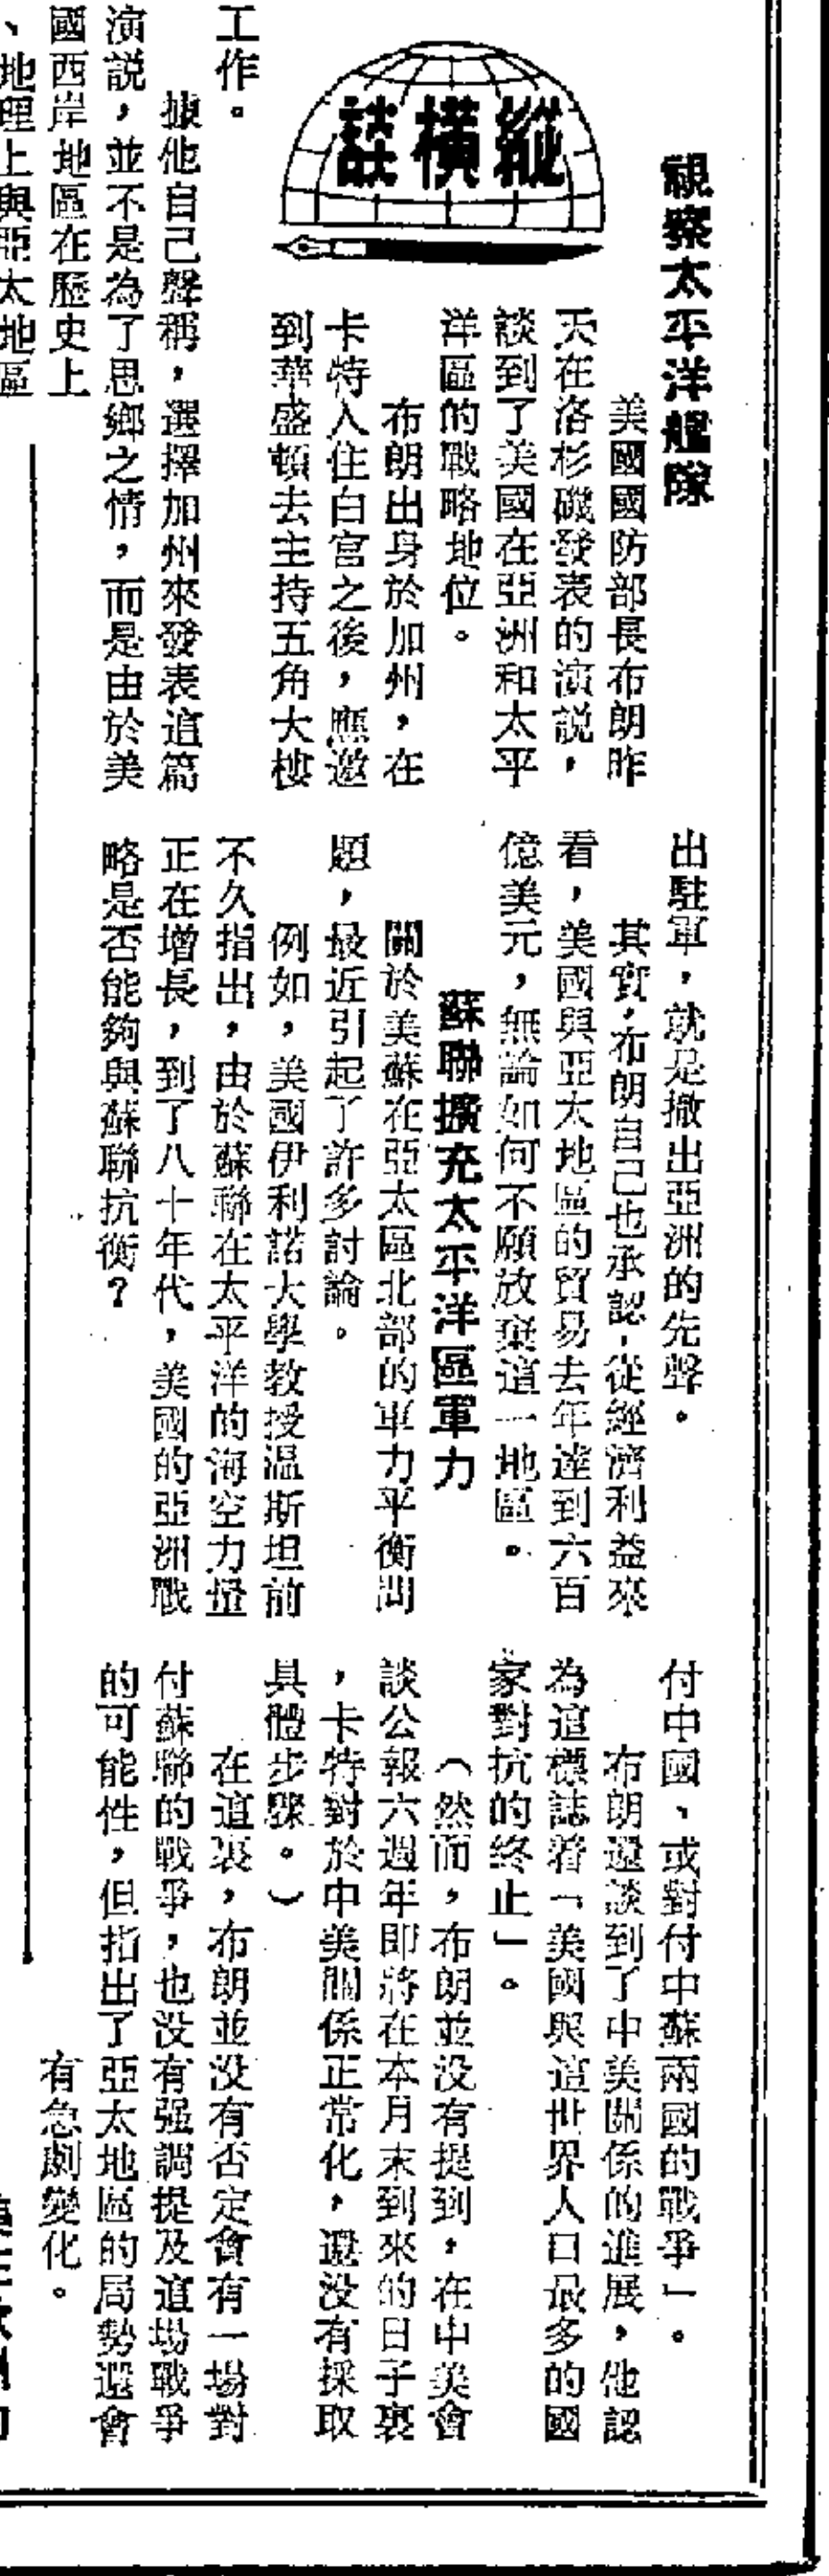 縱橫談
視察太平洋艦隊
美國國防部長布朗昨
天在洛杉磯發表的演説，
談到了美國在亞洲和太平
洋區的戰略地位。
布朗出身於加州，在
卡特入住白宮之後，應邀
到華盛頓去主持五角大樓
工作。
據他自己聲稱，選擇加州來發表這篇
演説，並不是為了思鄉之情，而是由於美
國西岸地區在歷史上
、地理上與亞太地區
出駐軍，就是撤出亞洲的先聲。
其實，布朗自己也承認，從經濟利益來
看，美國與亞太地區的貿易去年達到六百
億美元，無論如何不願放棄這一地區。
蘇聯擴充太平洋區軍力
關於美蘇在亞太區北部的軍力平衡問
題，最近引起了許多討論。
例如，美國伊利諾大學教授温斯坦前
不久指出，由於蘇聯在太平洋的海空力量
正在增長，到了八十年代，美國的亞洲戰
略是否能夠與蘇聯抗衡？
付中國、或對付中蘇兩國的戰爭」。
布朗還談到了中美關係的進展，他認
為這標誌着「美國與這世界人口最多的國
家對抗的終止」。
（然而，布朗並没有提到，在中美會
談公報六週年即將在本月末到來的日子裏
，卡特對於中美關係正常化，還没有採取
具體步驟。）
在這裏，布朗並没有否定會有一場對
付蘇聯的戰爭，也没有强調提及這場戰爭
的可能性，但指出了亞太地區的局勢還會
有急劇變化。